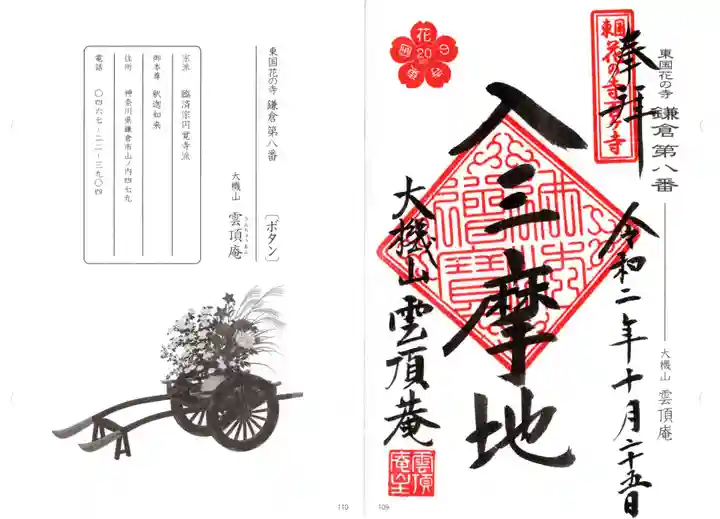 東国花の寺 鎌倉第八番
大機山 雲頂庵
東国
花の寺百ヶ寺
奉拝
花の寺
20
入三摩地
大機山雲頂菴
令和二年十月二十五日
雲頂
菴主
109
東国花の寺 鎌倉第八番
〔ボタン〕
大機山 雲頂庵
うんちょうあん
宗派 臨済宗円覚寺派
御本尊 釈迦如来
住所 神奈川県鎌倉市山ノ内四七九
電話 〇四六七-二二-三九〇四
110